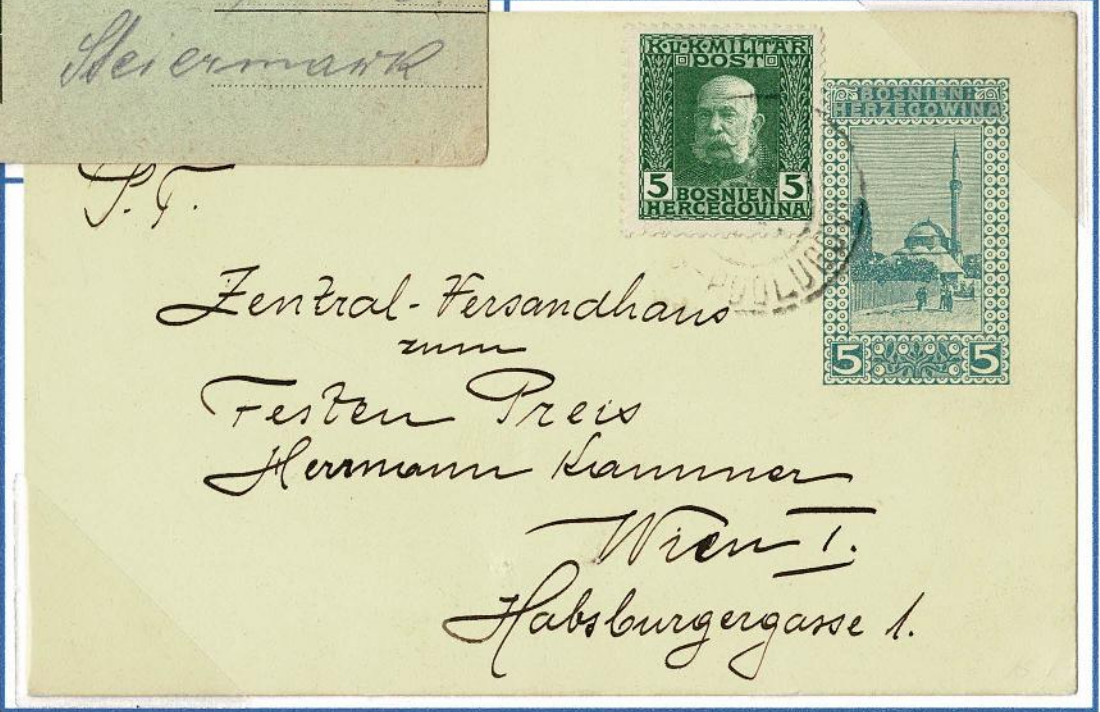 Steiermark
K.u.K. MILITÄR
POST
5 BOSNIEN 5
HERCEGOVINA
BOSNIEN-
HERZEGOWINA
5 5
P.T.
Zentral-Versandhaus
zum
Festen Preis
Herrmann Kammer
Wien I.
Habsburgergasse 1.